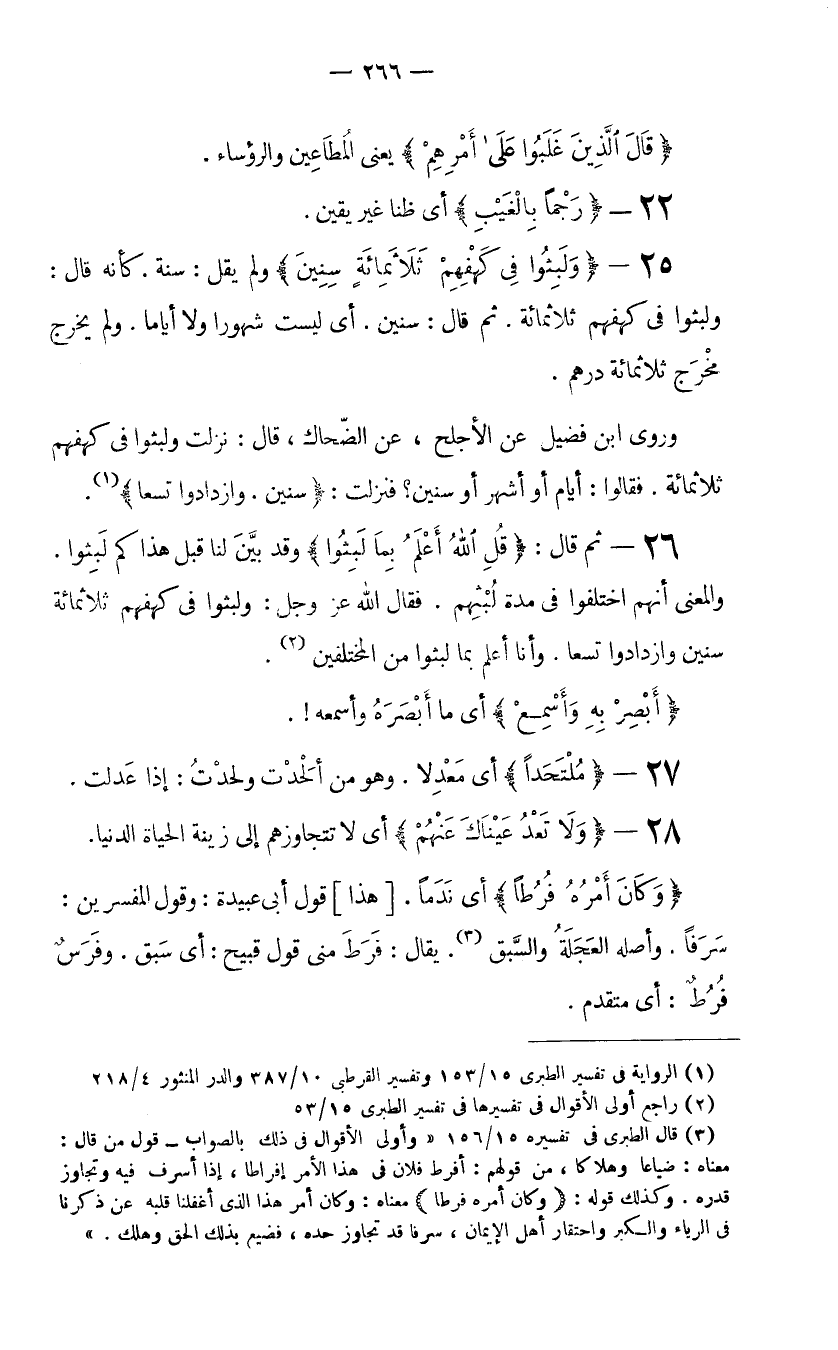 — ٢٦٦ —
﴿ قَالَ ٱلَّذِينَ غَلَبُوا عَلَىٰ أَمْرِهِمْ ﴾ يعنى المُطَاعِين والرؤساء .
٢٢ — ﴿ رَجْماً بِالْغَيْبِ ﴾ أى ظنا غير يقين .
٢٥ — ﴿ وَلَبِثُوا فِى كَهْفِهِمْ ثَلَاثَمِائَةٍ سِنِينَ ﴾ ولم يقل : سنة . كأنه قال :
ولبثوا فى كهفهم ثلاثمائة . ثم قال : سنين . أى ليست شهورا ولا أياما . ولم يخرج
مَخْرَج ثلاثمائة درهم .
وروى ابن فضيل عن الأجلح ، عن الضّحاك ، قال : نزلت ولبثوا فى كهفهم
ثلاثمائة . فقالوا : أيام أو أشهر أو سنين؟ فنزلت : ﴿ سنين . وازدادوا تسعا ﴾(١).
٢٦ — ثم قال : ﴿ قُلِ ٱللهُ أَعْلَمُ بِمَا لَبِثُوا ﴾ وقد بيَّنَ لنا قبل هذا كم لَبِثوا .
والمعنى أنهم اختلفوا فى مدة لُبْثِهم . فقال الله عز وجل : ولبثوا فى كهفهم ثلاثمائة
سنين وازدادوا تسعا . وأنا أعلم بما لبثوا من المختلفين (٢) .
﴿ أَبْصِرْ بِهِ وَأَسْمِعْ ﴾ أى ما أَبْصَرَهُ وأسمعه ! .
٢٧ — ﴿ مُلْتَحَداً ﴾ أى مَعْدِلا . وهو من ألْحَدْت ولحدْتُ : إذا عَدلت .
٢٨ — ﴿ وَلَا تَعْدُ عَيْنَاكَ عَنْهُمْ ﴾ أى لا تتجاوزهم إلى زينة الحياة الدنيا.
﴿ وَكَانَ أَمْرُهُ فُرُطاً ﴾ أى نَدَماً . [ هذا ] قول أبى عبيدة : وقول المفسرين :
سَرَفاً . وأصله العَجَلَةُ والسَّبق (٣). يقال : فَرَطَ منى قول قبيح : أى سَبق . وفَرَسٌ
فُرُطٌ : أى متقدم .
(١) الرواية فى تفسير الطبرى ١٥٣/١٥ وتفسير القرطبى ٣٨٧/١٠ والدر المنثور ٢١٨/٤
(٢) راجع أولى الأقوال فى تفسيرها فى تفسير الطبرى ٥٣/١٥
(٣) قال الطبرى فى تفسيره ١٥٦/١٥ « وأولى الأقوال فى ذلك بالصواب — قول من قال :
معناه : ضياعا وهلاكا ، من قولهم : أفرط فلان فى هذا الأمر إفراطا ، إذا أسرف فيه وتجاوز
قدره . وكذلك قوله : ﴿ وكان أمره فرطا ﴾ معناه : وكان أمر هذا الذى أغفلنا قلبه عن ذكرنا
فى الرياء والكبر واحتقار أهل الإيمان ، سرفا قد تجاوز حده ، فضيع بذلك الحق وهلك . »